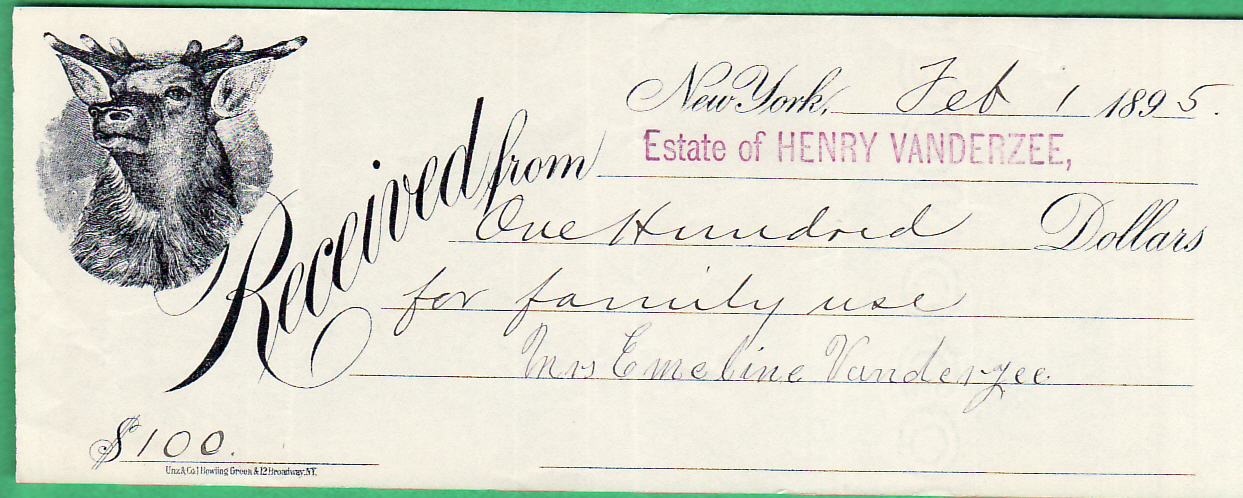 New York, Feb 1 1895.
Received from Estate of HENRY VANDERZEE,
One Hundred Dollars
for family use
Mrs Emeline Vanderzee.
$100.
Unz & Co 1 Bowling Green & 12 Broadway. N.Y.